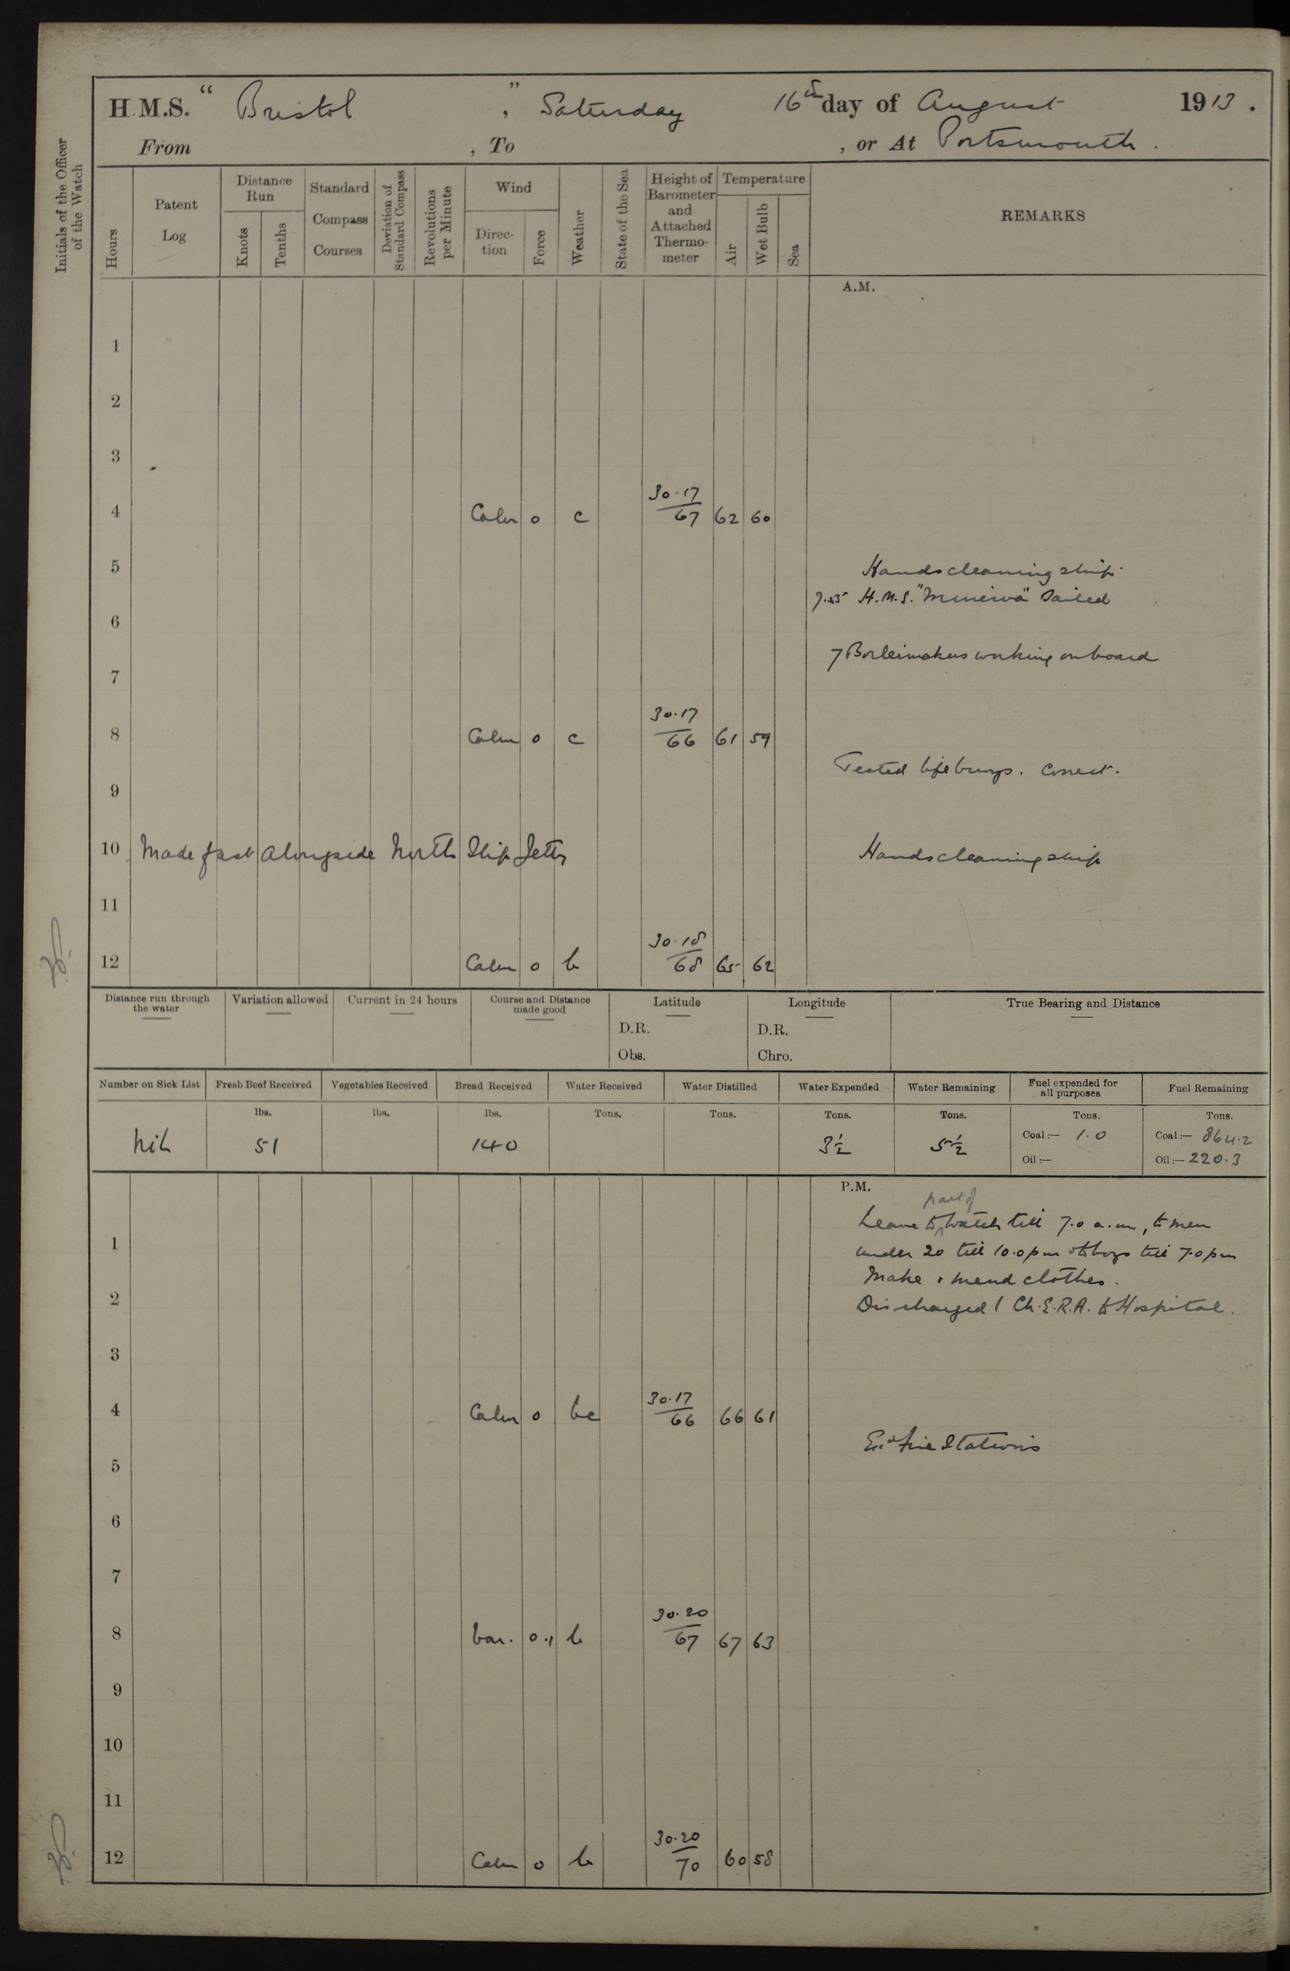 H.M.S. “ Bristol ” , Saturday 16th day of August 1913 .
From , To , or At Portsmouth .
Initials of the Officer of the Watch
Hours
Patent Log
Distance Run
Knots
Tenths
Standard Compass Courses
Deviation of Standard Compass
Revolutions per Minute
Wind
Direction
Force
Weather
State of the Sea
Height of Barometer and Attached Thermometer
Temperature
Air
Wet Bulb
Sea
REMARKS
A.M.
1
2
3
4 Calm 0 c 30.17/67 62 60
5 Hands cleaning ship.
7.55 H.M.S. "Minerva" Sailed
6
7 Boilermakers working on board
7
8 Calm 0 c 30.17/66 61 59
Tested lifebuoys. Correct.
9
10 Made fast alongside North Slip Jetty Hands cleaning ship
11
12 Calm 0 b 30.18/68 65 62
Distance run through the water
Variation allowed
Current in 24 hours
Course and Distance made good
Latitude
D.R.
Obs.
Longitude
D.R.
Chro.
True Bearing and Distance
Number on Sick List Fresh Beef Received Vegetables Received Bread Received Water Received Water Distilled Water Expended Water Remaining Fuel expended for all purposes Fuel Remaining
lbs. lbs. lbs. Tons. Tons. Tons. Tons. Tons. Tons.
Nil 51 140 3½ 5½ Coal :— 1.0 Coal :— 864.2
Oil :— Oil :— 220.3
P.M.
part of
Leave to watch till 7.0 a.m, to men
1
under 20 till 10.0 pm & to boys till 7.0 pm
Make & mend clothes.
2 Discharged 1 Ch.E.R.A. to Hospital.
3
4 Calm 0 bc 30.17/66 66 61
Exd Fire Stations
5
6
7
8 Var. 0.1 b 30.20/67 67 63
9
10
11
12 Calm 0 b 30.20/70 60 58